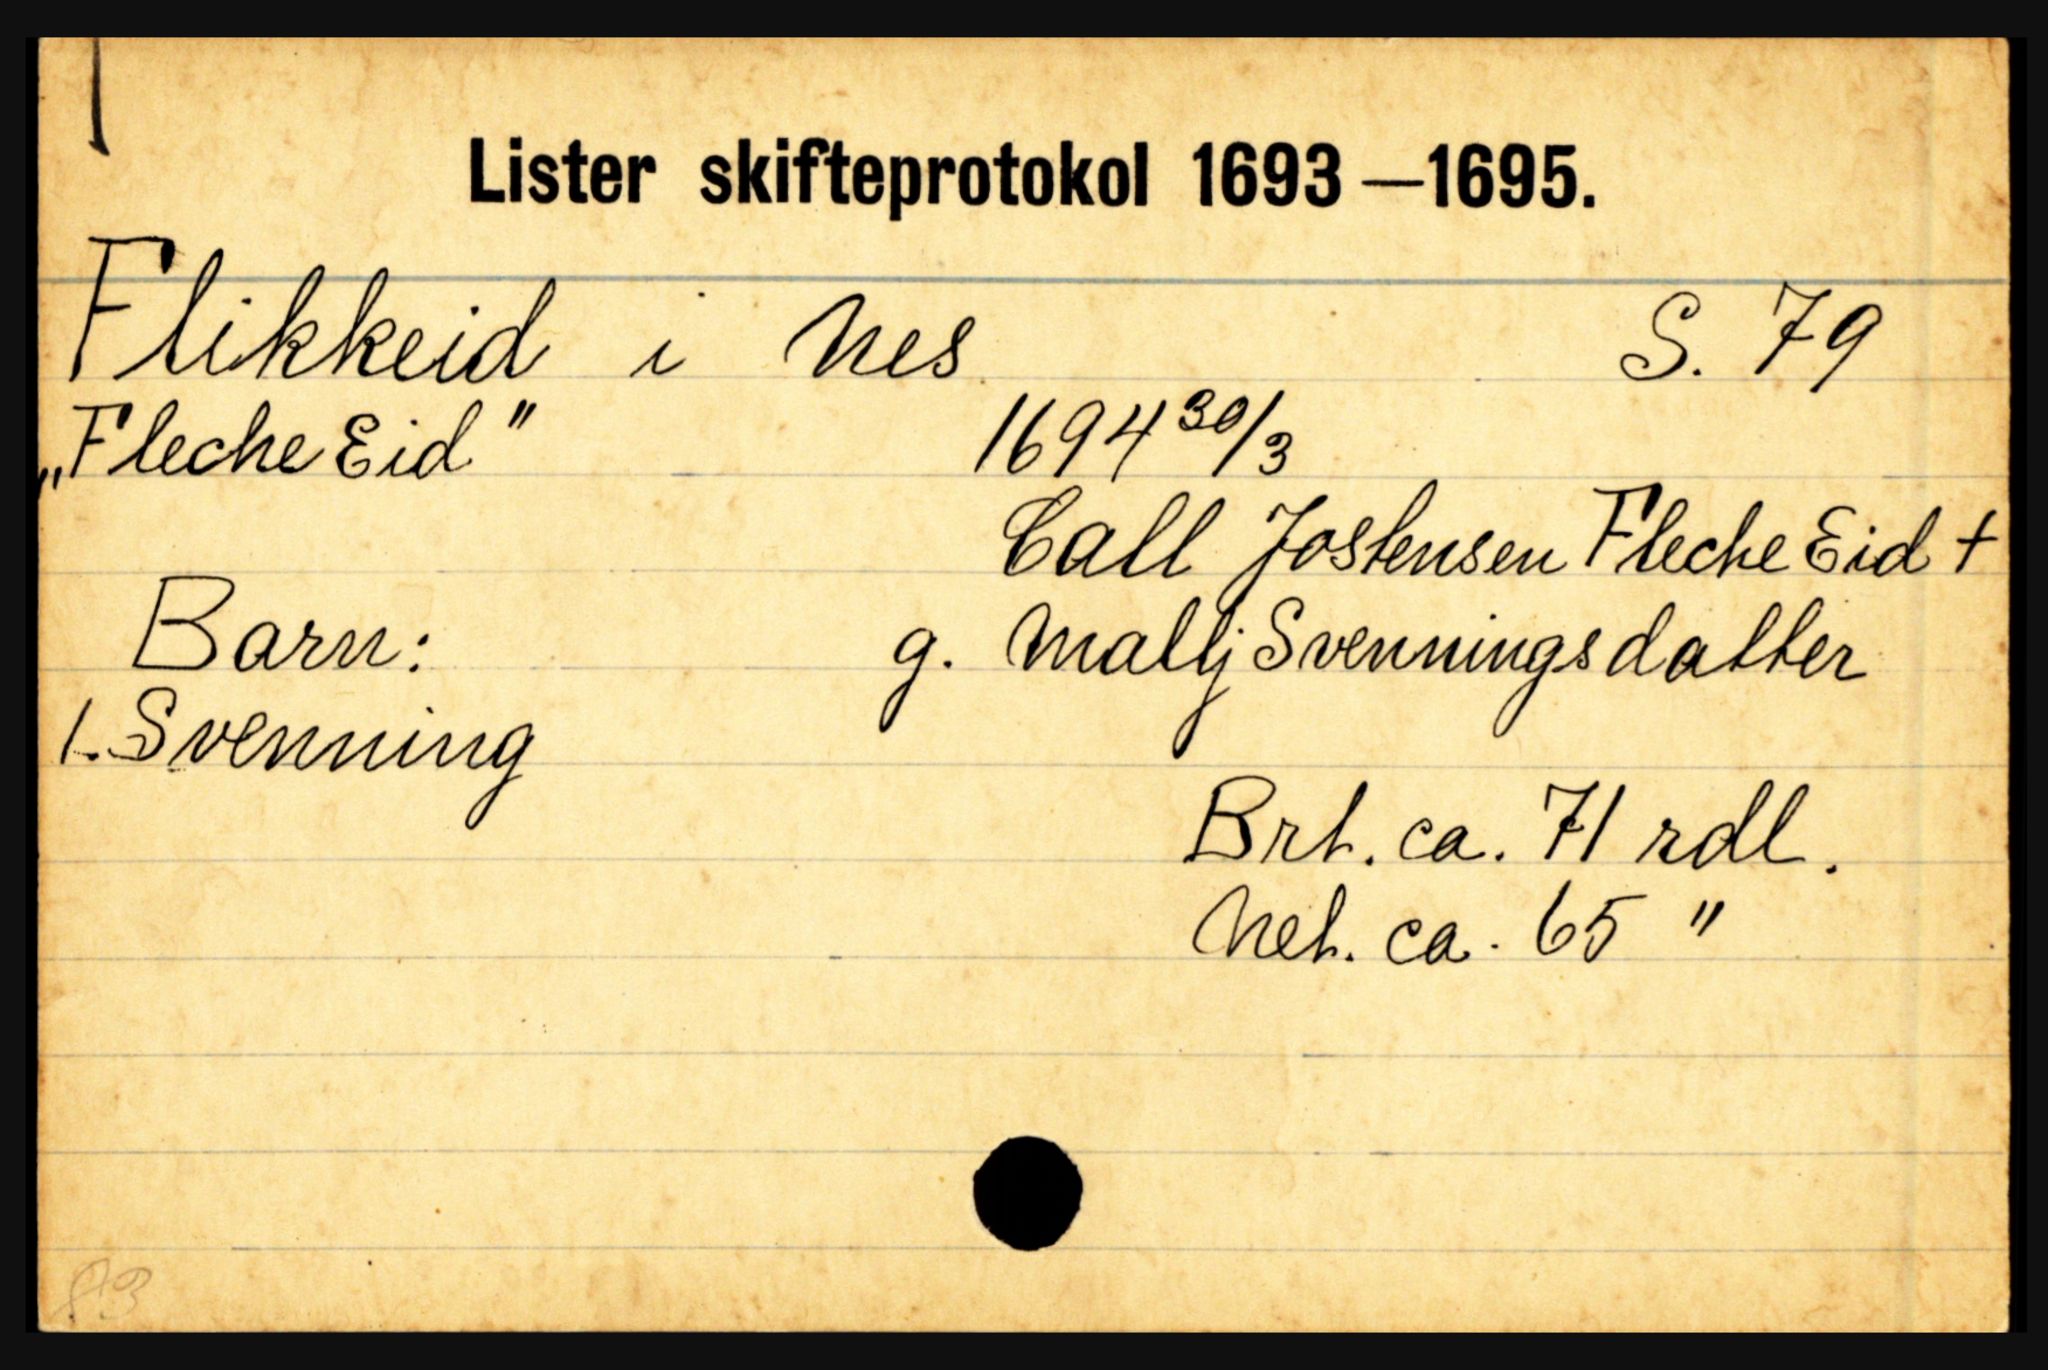 Lister skifteprotokol 1693—1695.
Flikkeid i Nes S. 79
„Fleche Eid" 1694 30/3
Call Jostensen Fleche Eid †
Barn: g. Mallj Svenningsdatter
1. Svenning
Brt. ca. 71 rdl.
Net. ca. 65 "
83